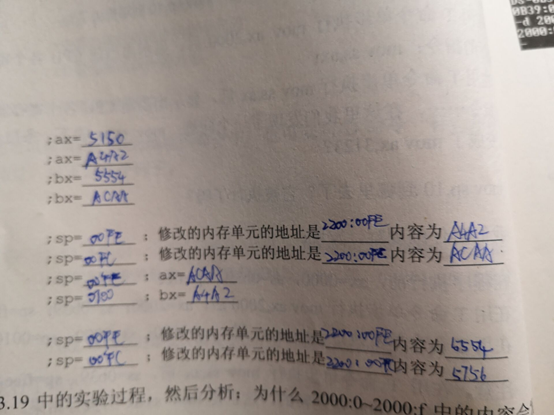 DS-0B
0B39:0
-d 200
2000:
;ax= 5150
;ax= A4A2
;bx= 5554
;bx= ACAA
;sp= 00FE ; 修改的内存单元的地址是 2200:00FE 内容为 A4A2
;sp= 00FC ; 修改的内存单元的地址是 2200:00FE 内容为 ACAA
;sp= 00FE ; ax= ACAA
;sp= 0100 ; bx= A4A2
;sp= 00FE ; 修改的内存单元的地址是 2200:00FE 内容为 5554
;sp= 00FC ; 修改的内存单元的地址是 2200:00FC 内容为 5756
3.19 中的实验过程，然后分析：为什么 2000:0~2000:f 中的内容会